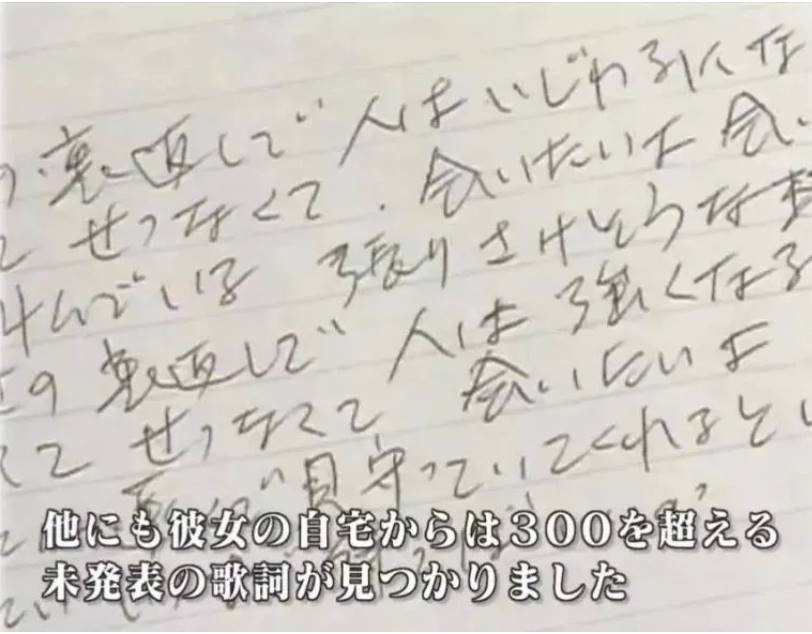 の裏返しで 人はいじわるにな
て せつなくて 会いたいよ 会い
叫んでいる 張りさけそうな
の裏返しで 人は強くなる
くて せつなくて 会いたいよ
見守っていてくれると
他にも彼女の自宅からは３００を超える
未発表の歌詞が見つかりました